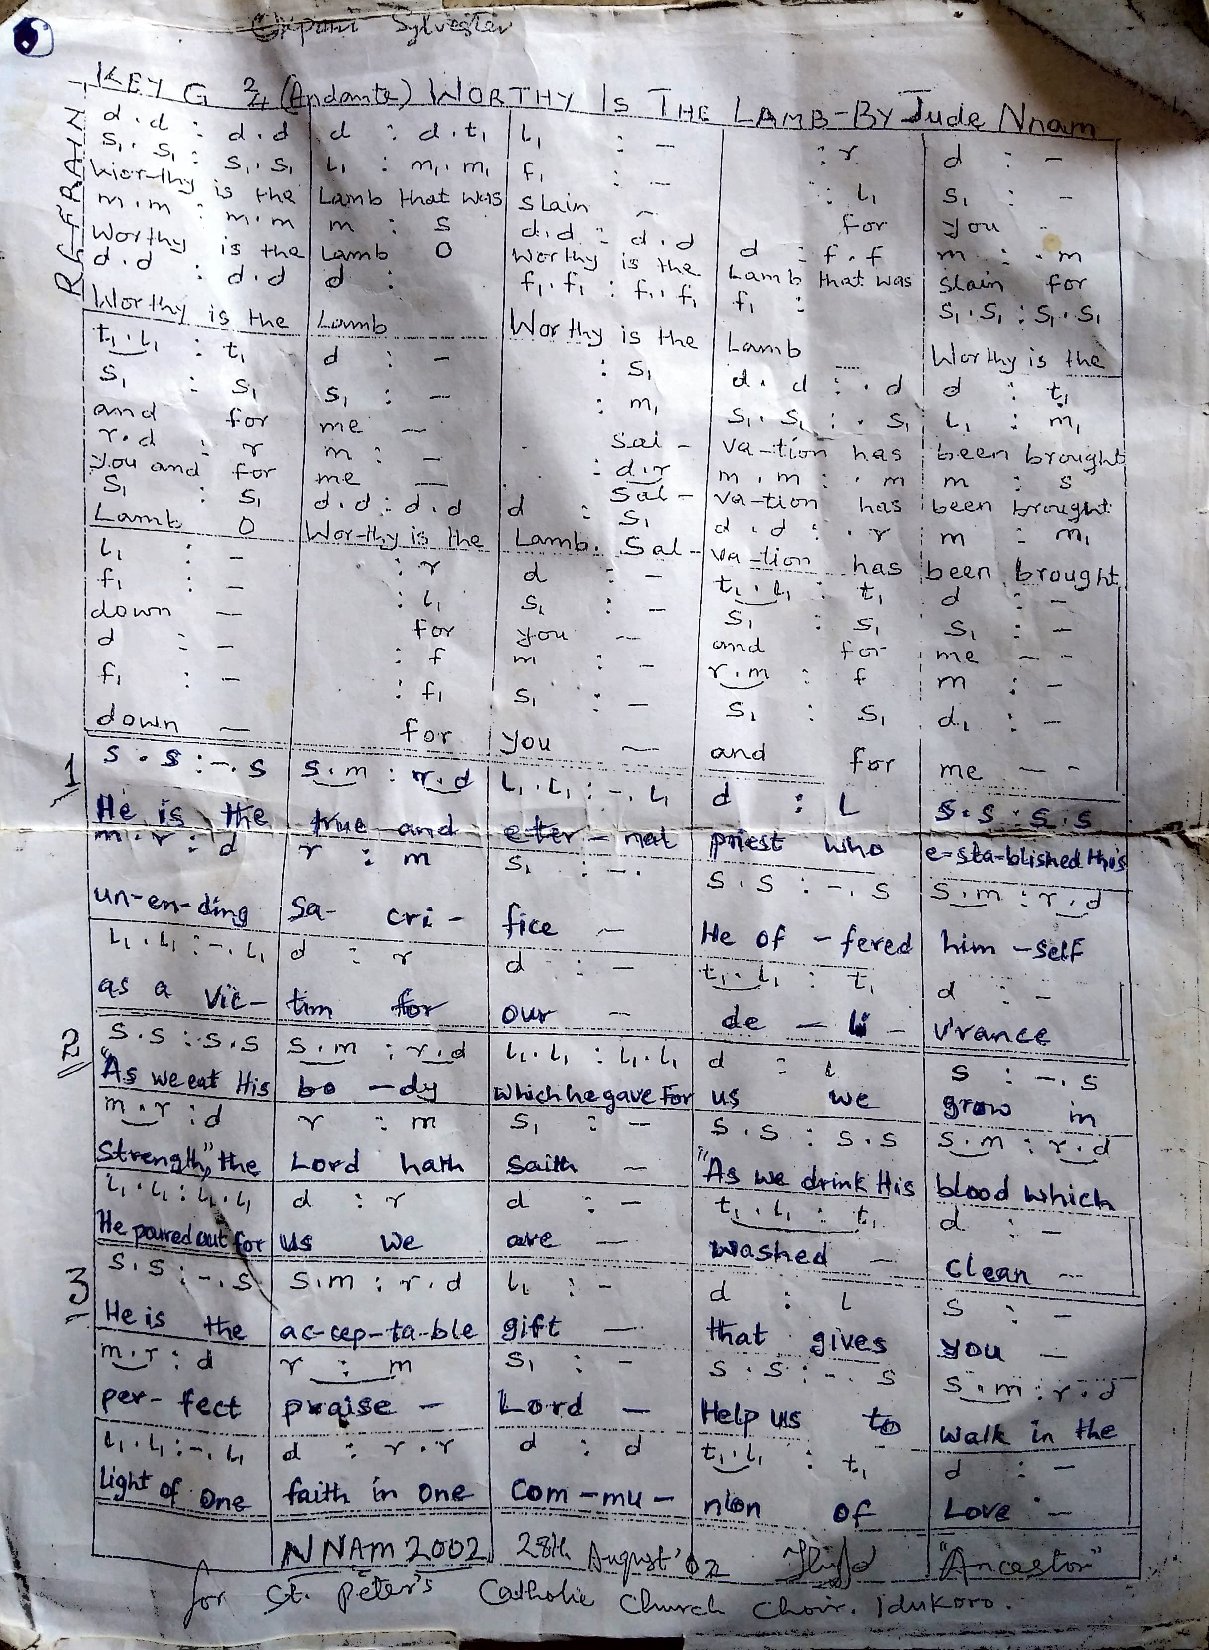 Okpani Sylvester
KEY G 2/4 (Andante) WORTHY IS THE LAMB-BY Jude Nnam
REFRAIN
d.d : d.d | d : d.t₁ | l₁ : – | : r | d : –
s₁.s₁ : s₁.s₁ | l₁ : m₁.m₁ | f₁ : – | : l₁ | s₁ : –
Wor-thy is the | Lamb that was | slain – | for | you –
m.m : m.m | m : s | d.d : d.d | d : f.f | m : .m
Worthy is the | Lamb O | Worthy is the | Lamb that was | slain for
d.d : d.d | d : | f₁.f₁ : f₁.f₁ | f₁ : | s₁.s₁ : s₁.s₁
Worthy is the | Lamb | Wor thy is the | Lamb – | Wor thy is the
t₁.l₁ : t₁ | d : – | : s₁ | d.d : .d | d : t₁
s₁ : s₁ | s₁ : – | : m₁ | s₁.s₁ : .s₁ | l₁ : m₁
and for | me – | Sal – | va-tion has | been brought
r.d : r | m : – | : d.r | m.m : .m | m : s
you and for | me – | Sal – | va-tion has | been brought
s₁ : s₁ | d.d : d.d | d : s₁ | d.d : .r | m : m₁
Lamb O | Wor-thy is the | Lamb. Sal- | va-tion has | been brought
l₁ : – | : r | d : – | t₁.l₁ : t₁ | d : –
f₁ : – | : l₁ | s₁ : – | s₁ : s₁ | s₁ : –
down – | for | you – | and for | me – –
d : – | : f | m : – | r.m : f | m : –
f₁ : – | : f₁ | s₁ : – | s₁ : s₁ | d₁ : –
down – | for | you – | and for | me – –
1 s.s : –.s | s.m : r.d | l₁.l₁ : –.l₁ | d : l | s.s : s.s
He is the | true and | eter-nal | priest who | e-sta-blished this
m.r : d | r : m | s₁ : –. | s.s : –.s | s.m : r.d
un-en-ding | Sa- cri – | fice – | He of – fered | him – self
l₁.l₁ : –.l₁ | d : r | d : – | t₁.l₁ : t₁ | d : –
as a vic- | tim for | our – | de – li – | v'rance
2 s.s : s.s | s.m : r.d | l₁.l₁ : l₁.l₁ | d : l | s : –.s
"As we eat His | bo – dy | which he gave For | us we | grow in
m.r : d | r : m | s₁ : – | s.s : s.s | s.m : r.d
strength," the | Lord hath | saith – | "As we drink His | blood which
l₁.l₁ : l₁.l₁ | d : r | d : – | t₁.l₁ : t₁ | d : –
He poured out for | us we | are – | washed – | clean –
3 s.s : –.s | s.m : r.d | l₁ : – | d : l | s : –
He is the | ac-cep-ta-ble | gift – | that gives | you –
m.r : d | r : m | s₁ : – | s.s : –.s | s.m : r.d
per- fect | praise – | Lord – | Help us to | walk in the
l₁.l₁ : –.l₁ | d : r.r | d : d | t₁.l₁ : t₁ | d : –
light of one | faith in one | com – mu – | nion of | Love –
NNAM 2002 28th August '02 "Ancestor"
for St. Peter's Catholic Church Choir. Idukoro.